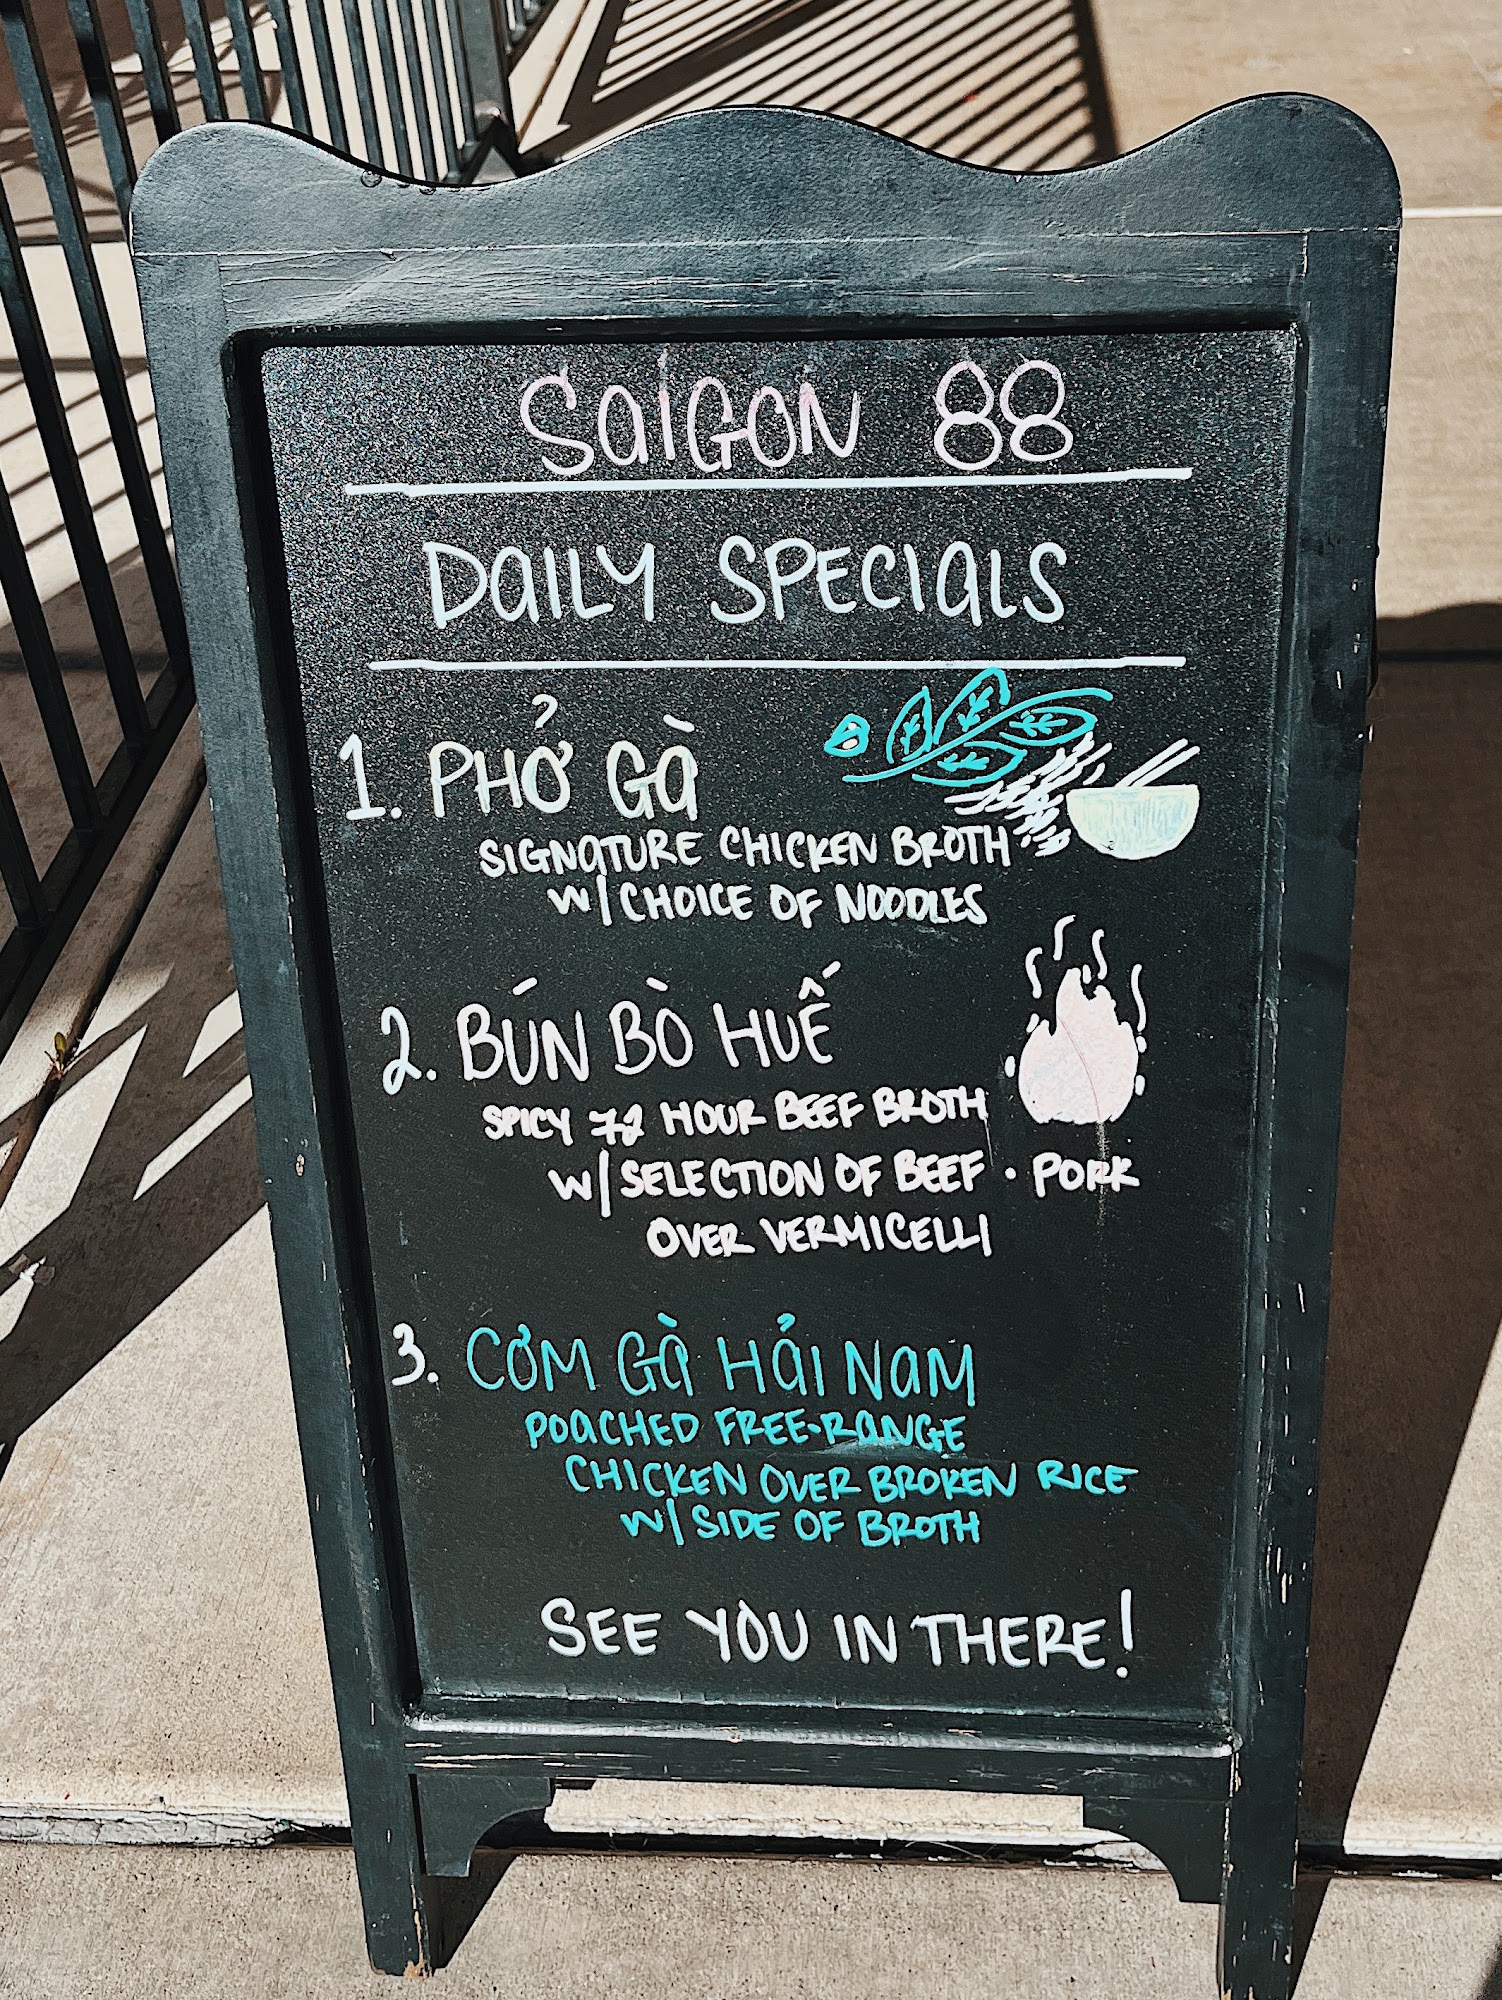 SAIGON 88
DAILY SPECIALS
1. PHỞ GÀ
SIGNATURE CHICKEN BROTH
W/ CHOICE OF NOODLES
2. BÚN BÒ HUẾ
SPICY 72 HOUR BEEF BROTH
W/ SELECTION OF BEEF · PORK
OVER VERMICELLI
3. CƠM GÀ HẢI NAM
POACHED FREE-RANGE
CHICKEN OVER BROKEN RICE
W/ SIDE OF BROTH
SEE YOU IN THERE!